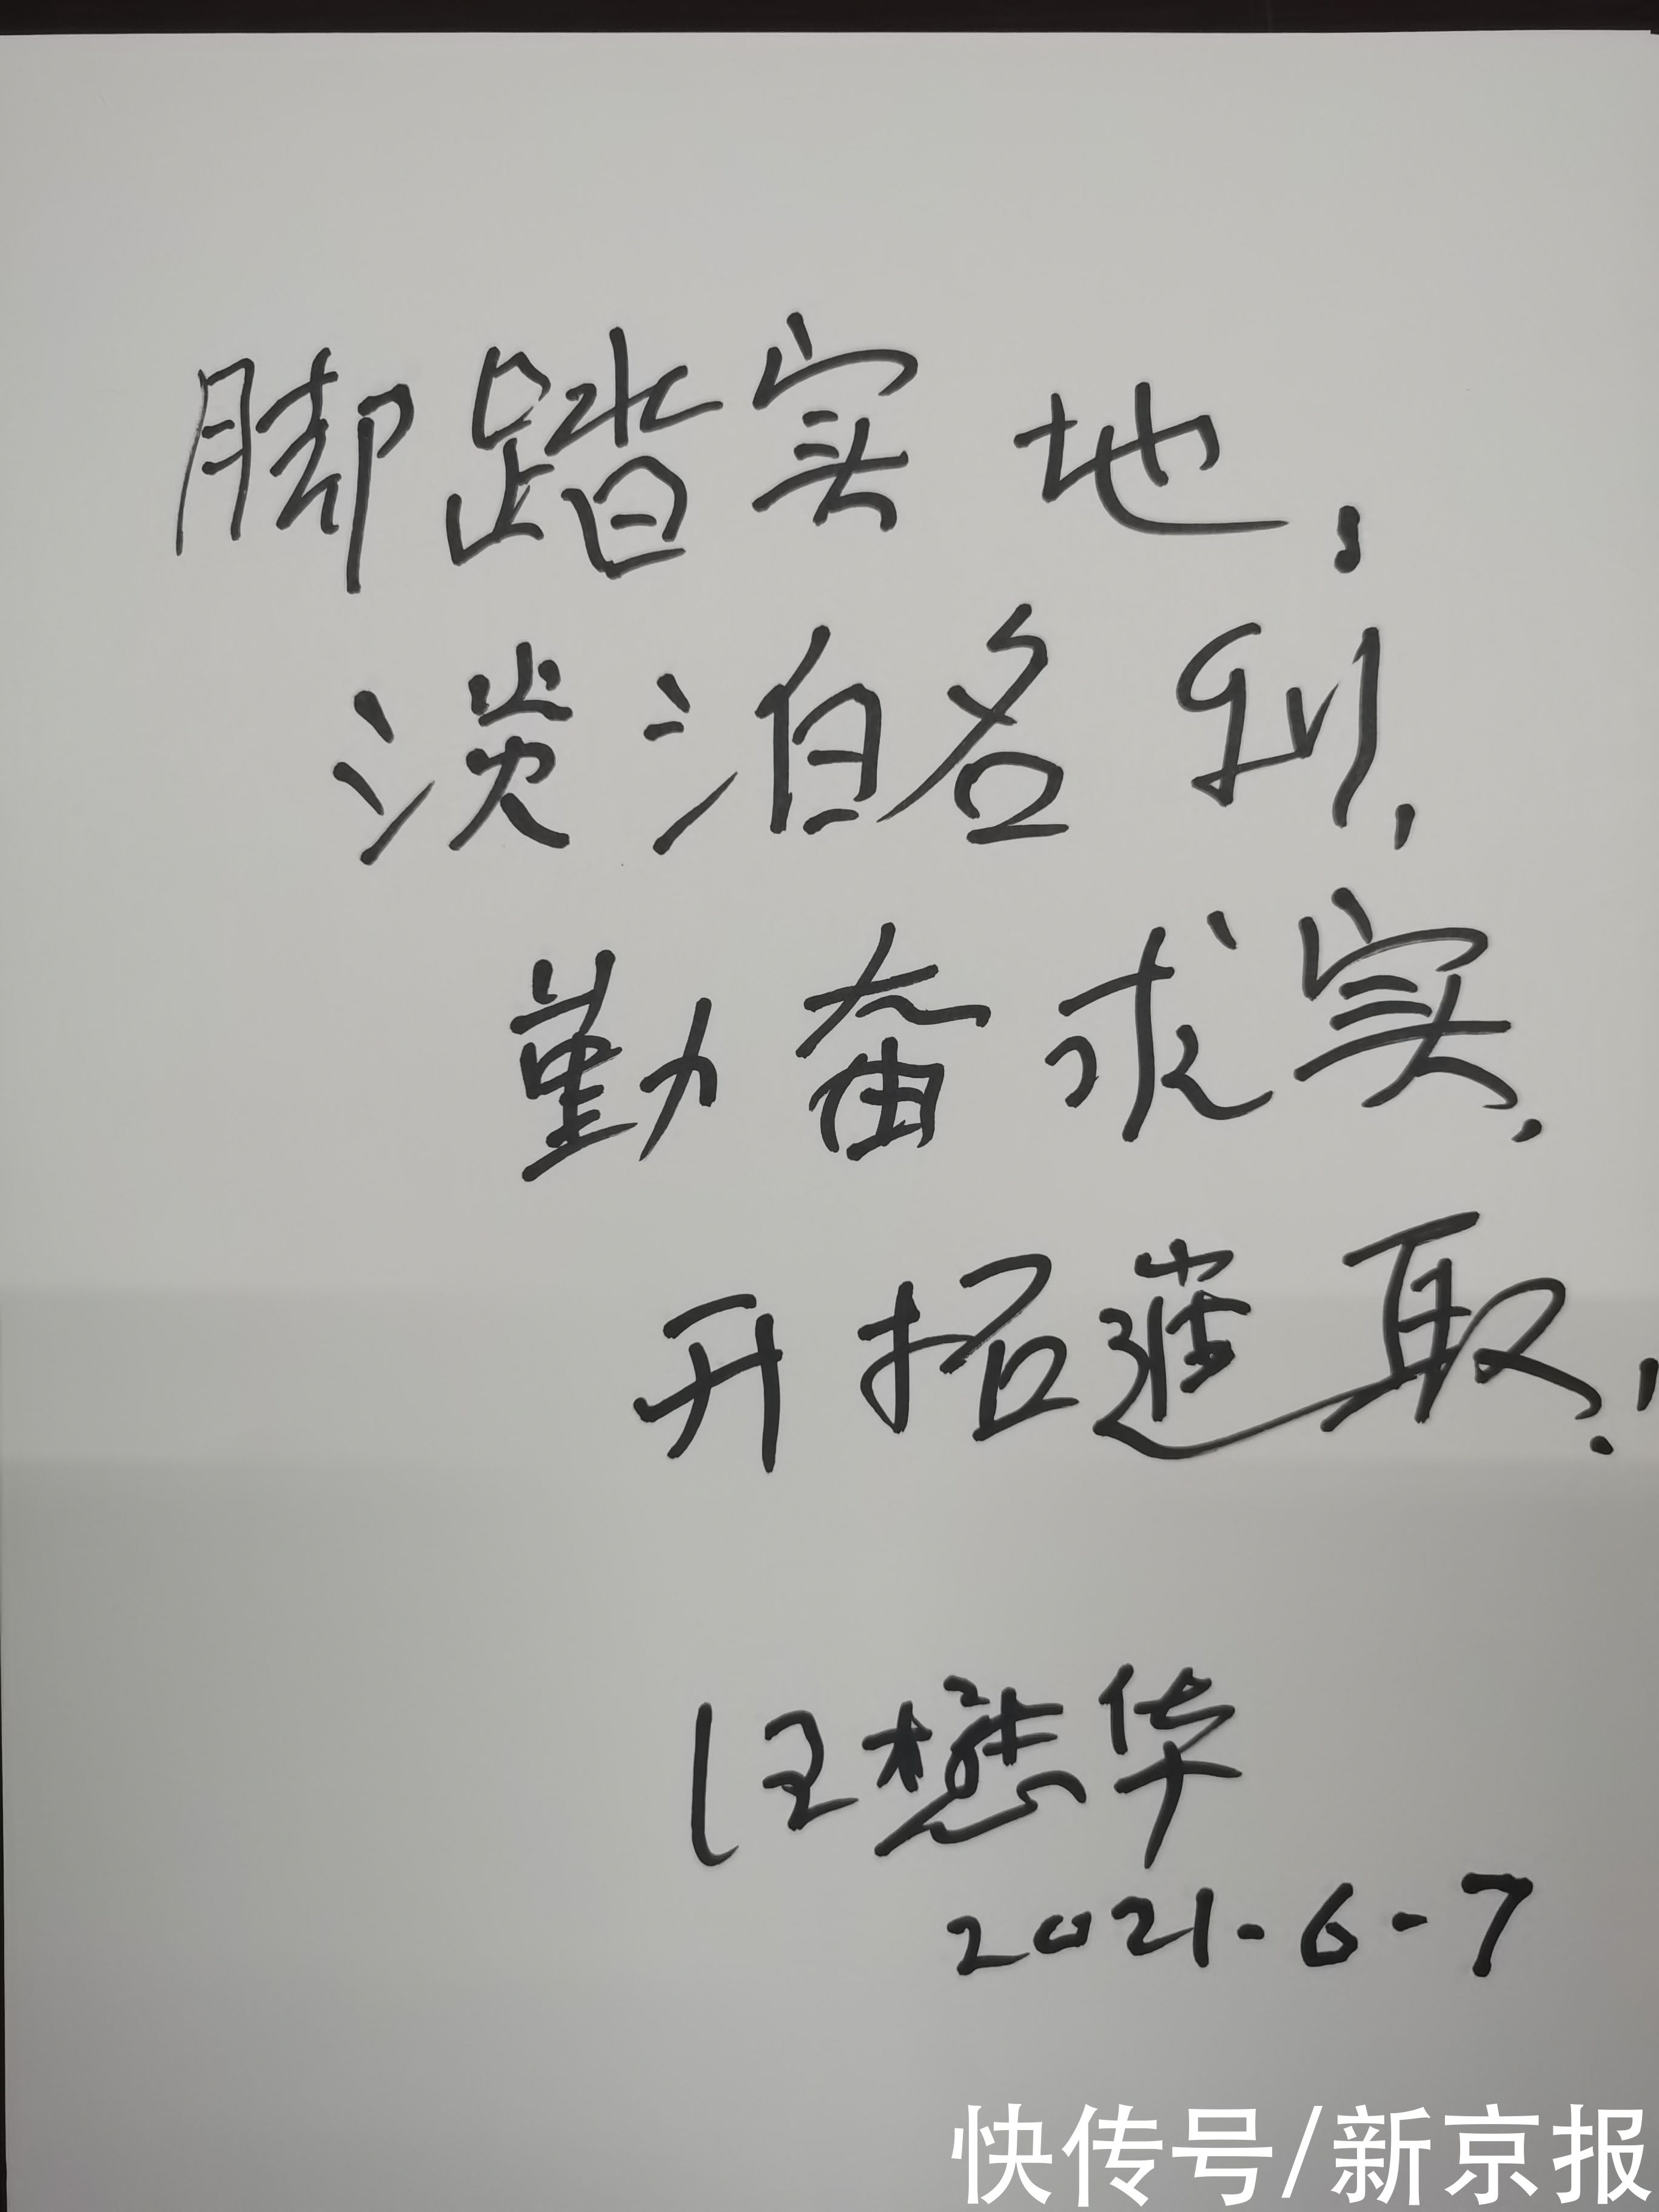 脚踏实地，
淡泊名利，
勤奋求实，
开拓進取！
汪懋华
2021-6-7
快传号/新京报